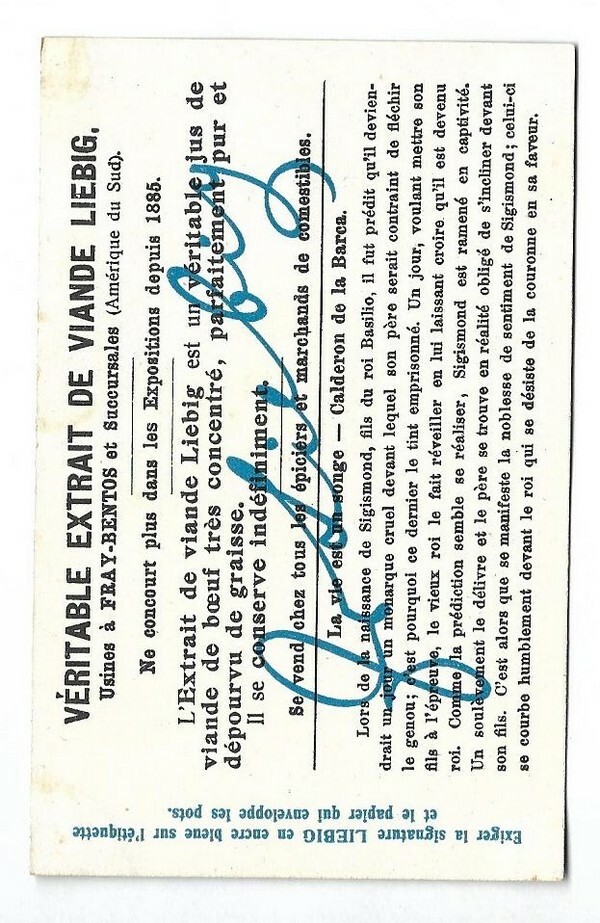 VÉRITABLE EXTRAIT DE VIANDE LIEBIG.
Usines à FRAY-BENTOS et Succursales (Amérique du Sud).
Ne concourt plus dans les Expositions depuis 1885.
L'Extrait de viande Liebig est un véritable jus de
viande de bœuf très concentré, parfaitement pur et
dépourvu de graisse.
Il se conserve indéfiniment.
Se vend chez tous les épiciers et marchands de comestibles.
La vie est un songe — Calderon de la Barca.
Lors de la naissance de Sigismond, fils du roi Basilio, il fut prédit qu'il devien-
drait un jour un monarque cruel devant lequel son père serait contraint de fléchir
le genou; c'est pourquoi ce dernier le tint emprisonné. Un jour, voulant mettre son
fils à l'épreuve, le vieux roi le fait réveiller en lui laissant croire qu'il est devenu
roi. Comme la prédiction semble se réaliser, Sigismond est ramené en captivité.
Un soulèvement le délivre et le père se trouve en réalité obligé de s'incliner devant
son fils. C'est alors que se manifeste la noblesse de sentiment de Sigismond; celui-ci
se courbe humblement devant le roi qui se désiste de la couronne en sa faveur.
J v Liebig
Exiger la signature LIEBIG en encre bleue sur l'étiquette
et le papier qui enveloppe les pots.